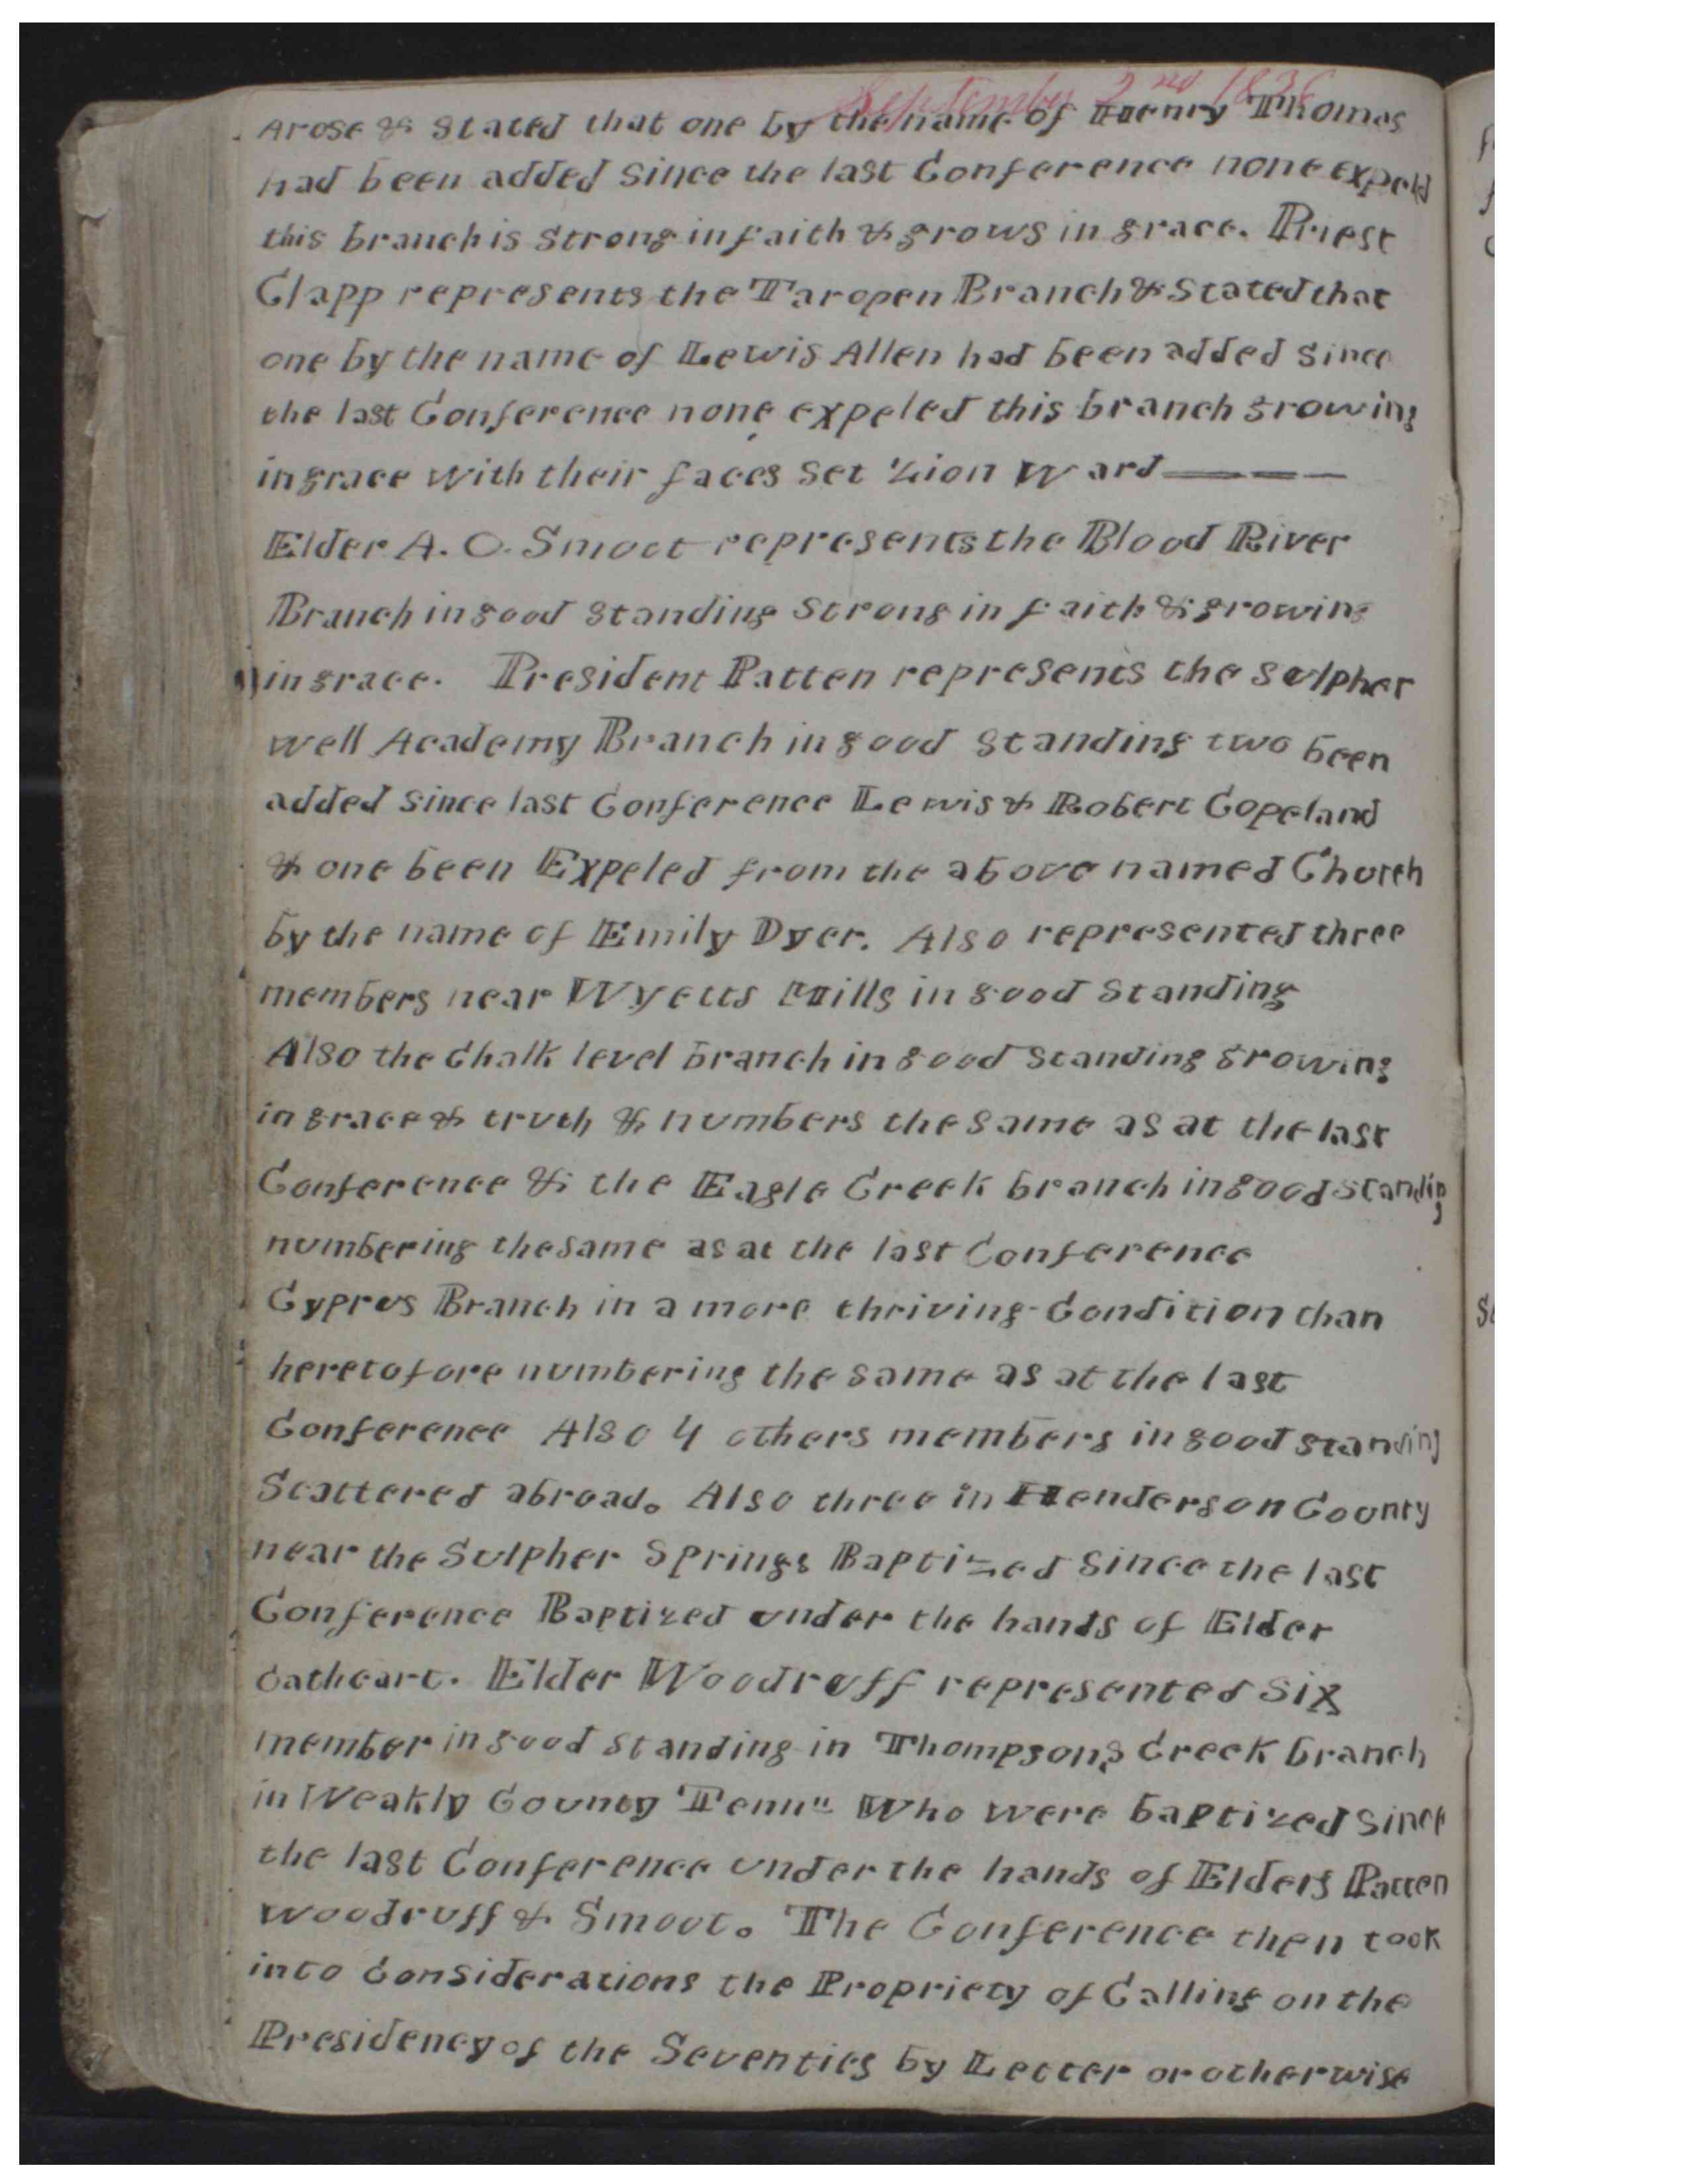 September 2nd 1836
Arose & Stated that one by the name of Henry Thomas
had been added Since the last Conference none expeld
this branch is Strong in faith & grows in grace. Priest
Clapp represents the Taropen Branch & Stated that
one by the name of Lewis Allen had been added Since
the last Conference none expeled this branch growing
in grace with their faces Set Zion Ward
Elder A. O. Smoot represents the Blood River
Branch in good Standing Strong in faith & growing
in grace. President Patten represents the Sulpher
well Academy Branch in good Standing two been
added Since last Conference Lewis & Robert Copeland
& one been Expeled from the above named Church
by the name of Emily Dyer. Also represented three
members near Wyetts Mills in good Standing
Also the Chalk level branch in good Standing growing
in grace & truth & numbers the Same as at the last
Conference & the Eagle Creek branch in good Standing
numbering the Same as at the last Conference
Cyprus Branch in a more thriving Condition than
heretofore numbering the Same as at the last
Conference Also 4 others members in good Standing
Scattered abroad. Also three in Henderson County
near the Sulpher Springs Baptized Since the last
Conference Baptized under the hands of Elder
Cathcart. Elder Woodruff represented Six
member in good Standing in Thompsons Creek branch
in Weakly County Tenn" Who were baptized Since
the last Conference under the hands of Elders Patten
Woodruff & Smoot. The Conference then took
into Considerations the Propriety of Calling on the
Presidency of the Seventies by Letter or otherwise